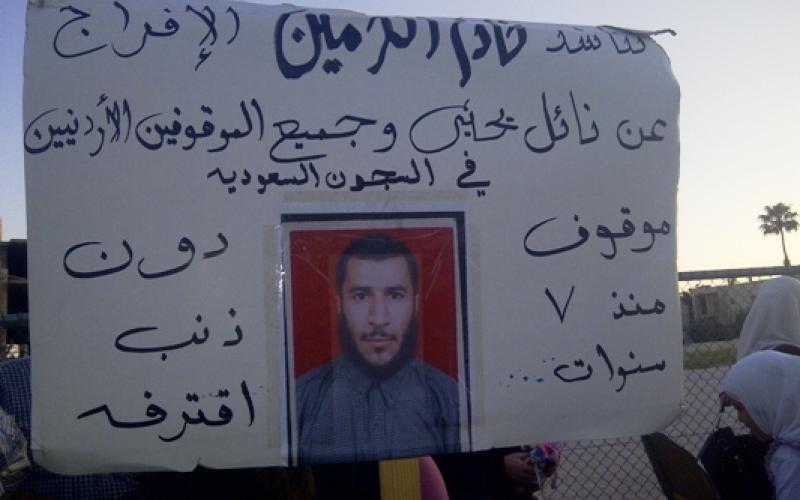 نناشد خادم الحرمين الإفراج
عن نائل يحيى وجميع الموقوفين الأردنيين
في السجون السعوديه
موقوف
منذ ٧
سنوات ...
دون
ذنب
اقترفه